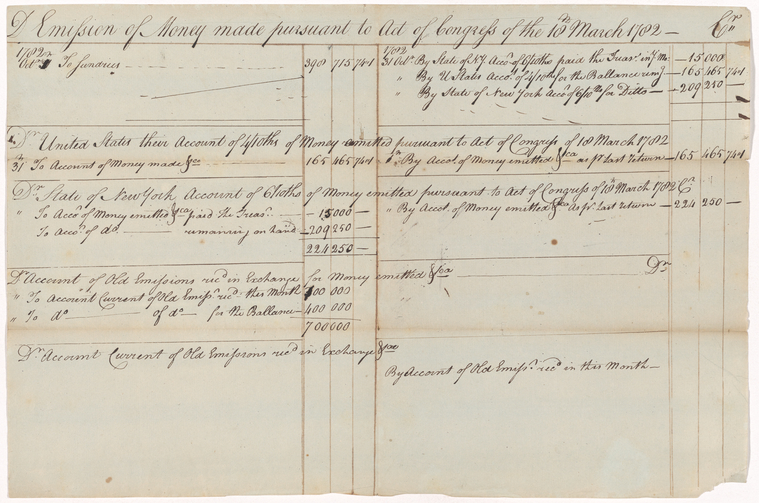 Dr Emission of Money made pursuant to Act of Congress of the 18th March 1782 — Cr
1782
Octr 31 To Sundries 398 715 74 4
1782
31 Octr By State of NY. Accot of 6/10ths paid the Treasr in ys Mo. — 15 000 —
" By U States Accot of 4/10ths for the Ballance remg — 165 465 74 4
" By State of New York Accot of 6/10ths for Ditto — 209 250 —
Dr United States their Account of 4/10ths of Money emitted pursuant to Act of Congress of 18 March 1782
31 To Account of Money made &ca 165 465 74 4
By Accot of Money emitted &ca as pr Last return — 165 465 74 4
Dr State of New York Account of 6/10ths of Money emitted pursuant to Act of Congress of 18th March 1782 Cr
" To Accot of Money emitted &ca paid the Treasr — 15 000 —
" By Accot of Money emitted &ca As pr Last return — 224 250 —
To Accot of do remaining on hand — 209 250 —
224 250 —
Dr Account of Old Emissions recd in Exchange for Money emitted &ca
" To Account Current of Old Emissr recd this Month 300 000
" To do of do for the Ballance — 400 000
700 000
Dr Account Current of Old Emissions recd in Exchange &ca
By Account of Old Emissr recd in this Month —